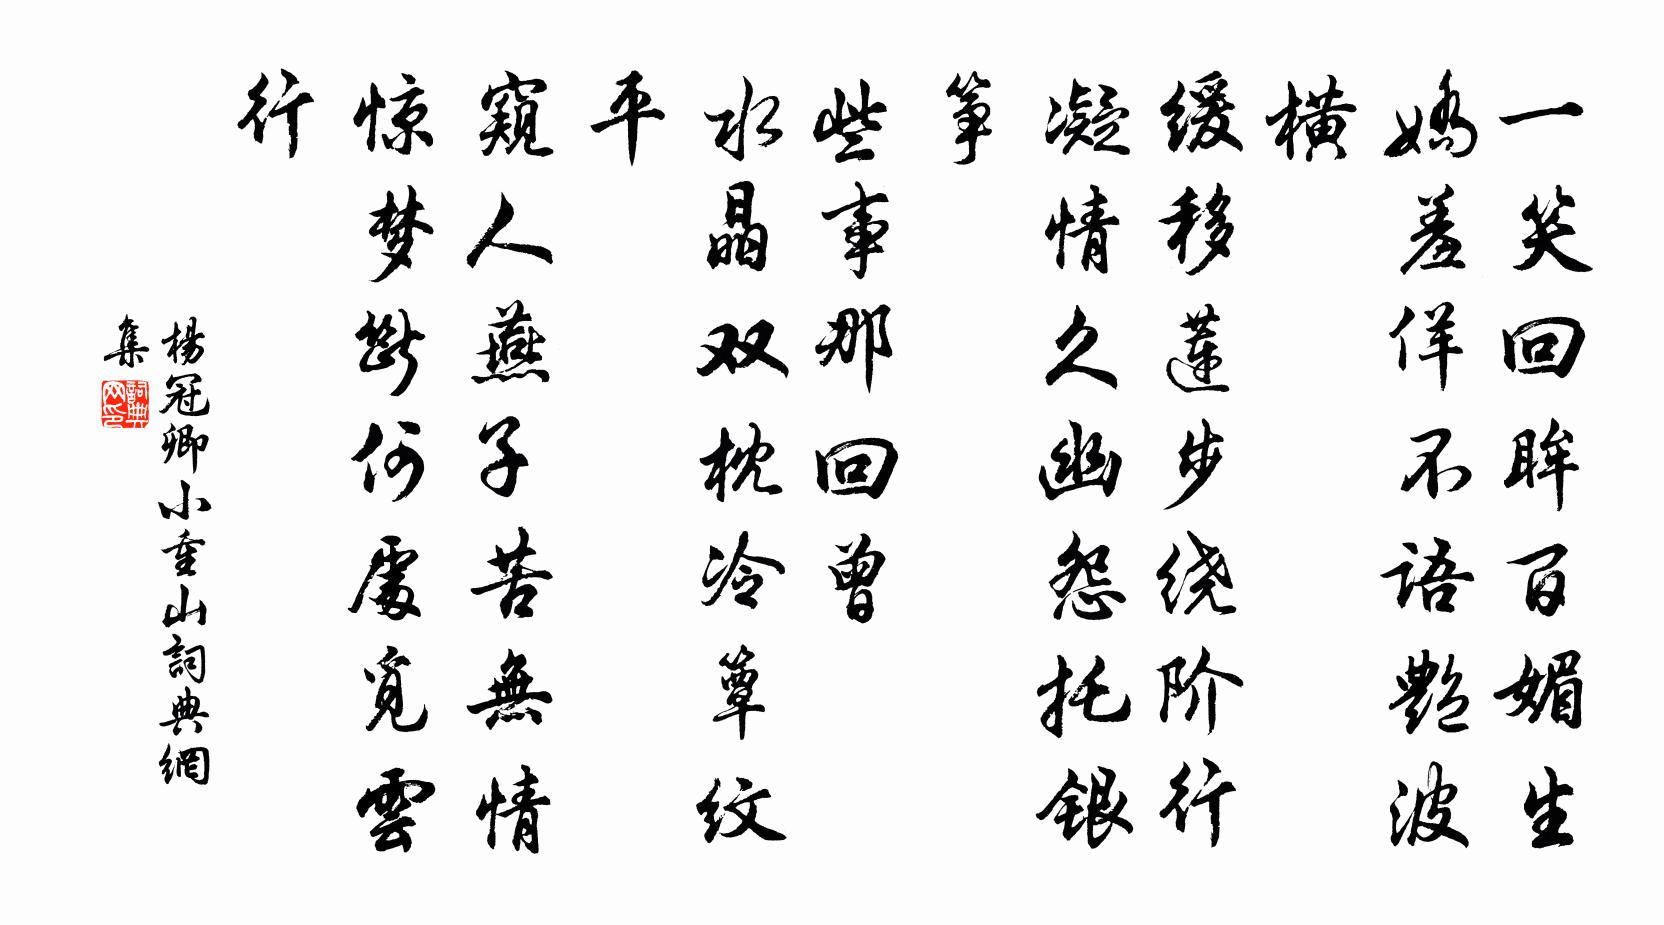 一笑回眸百媚生
娇羞佯不语艳波
横
缓移莲步绕阶行
凝情久幽怨托银
筝
些事那回曾
水晶双枕冷簟纹
平
窥人燕子苦無情
惊梦斷何處觅雲
行
楊冠卿小重山詞典網
集
詞典网印